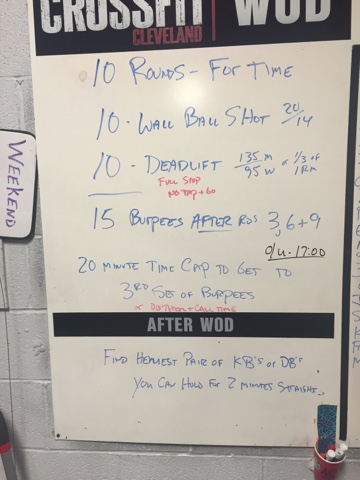 CROSSFIT | WOD
CLEVELAND
10 ROUNDS - FOR TIME
10 - WALL BALL SHOT 20/14
10 - DEADLIFT 135 M/95 W or 1/3 of 1RM
FULL STOP
NO TAP + GO
15 BURPEES AFTER RDS 3, 6 + 9
O/U - 17:00
20 MINUTE TIME CAP TO GET TO
3RD SET OF BURPEES
CALL TIME
AFTER WOD
FIND HEAVIEST PAIR OF KB'S or DB'S
YOU CAN HOLD FOR 2 MINUTES STRAIGHT.
WEEKEND